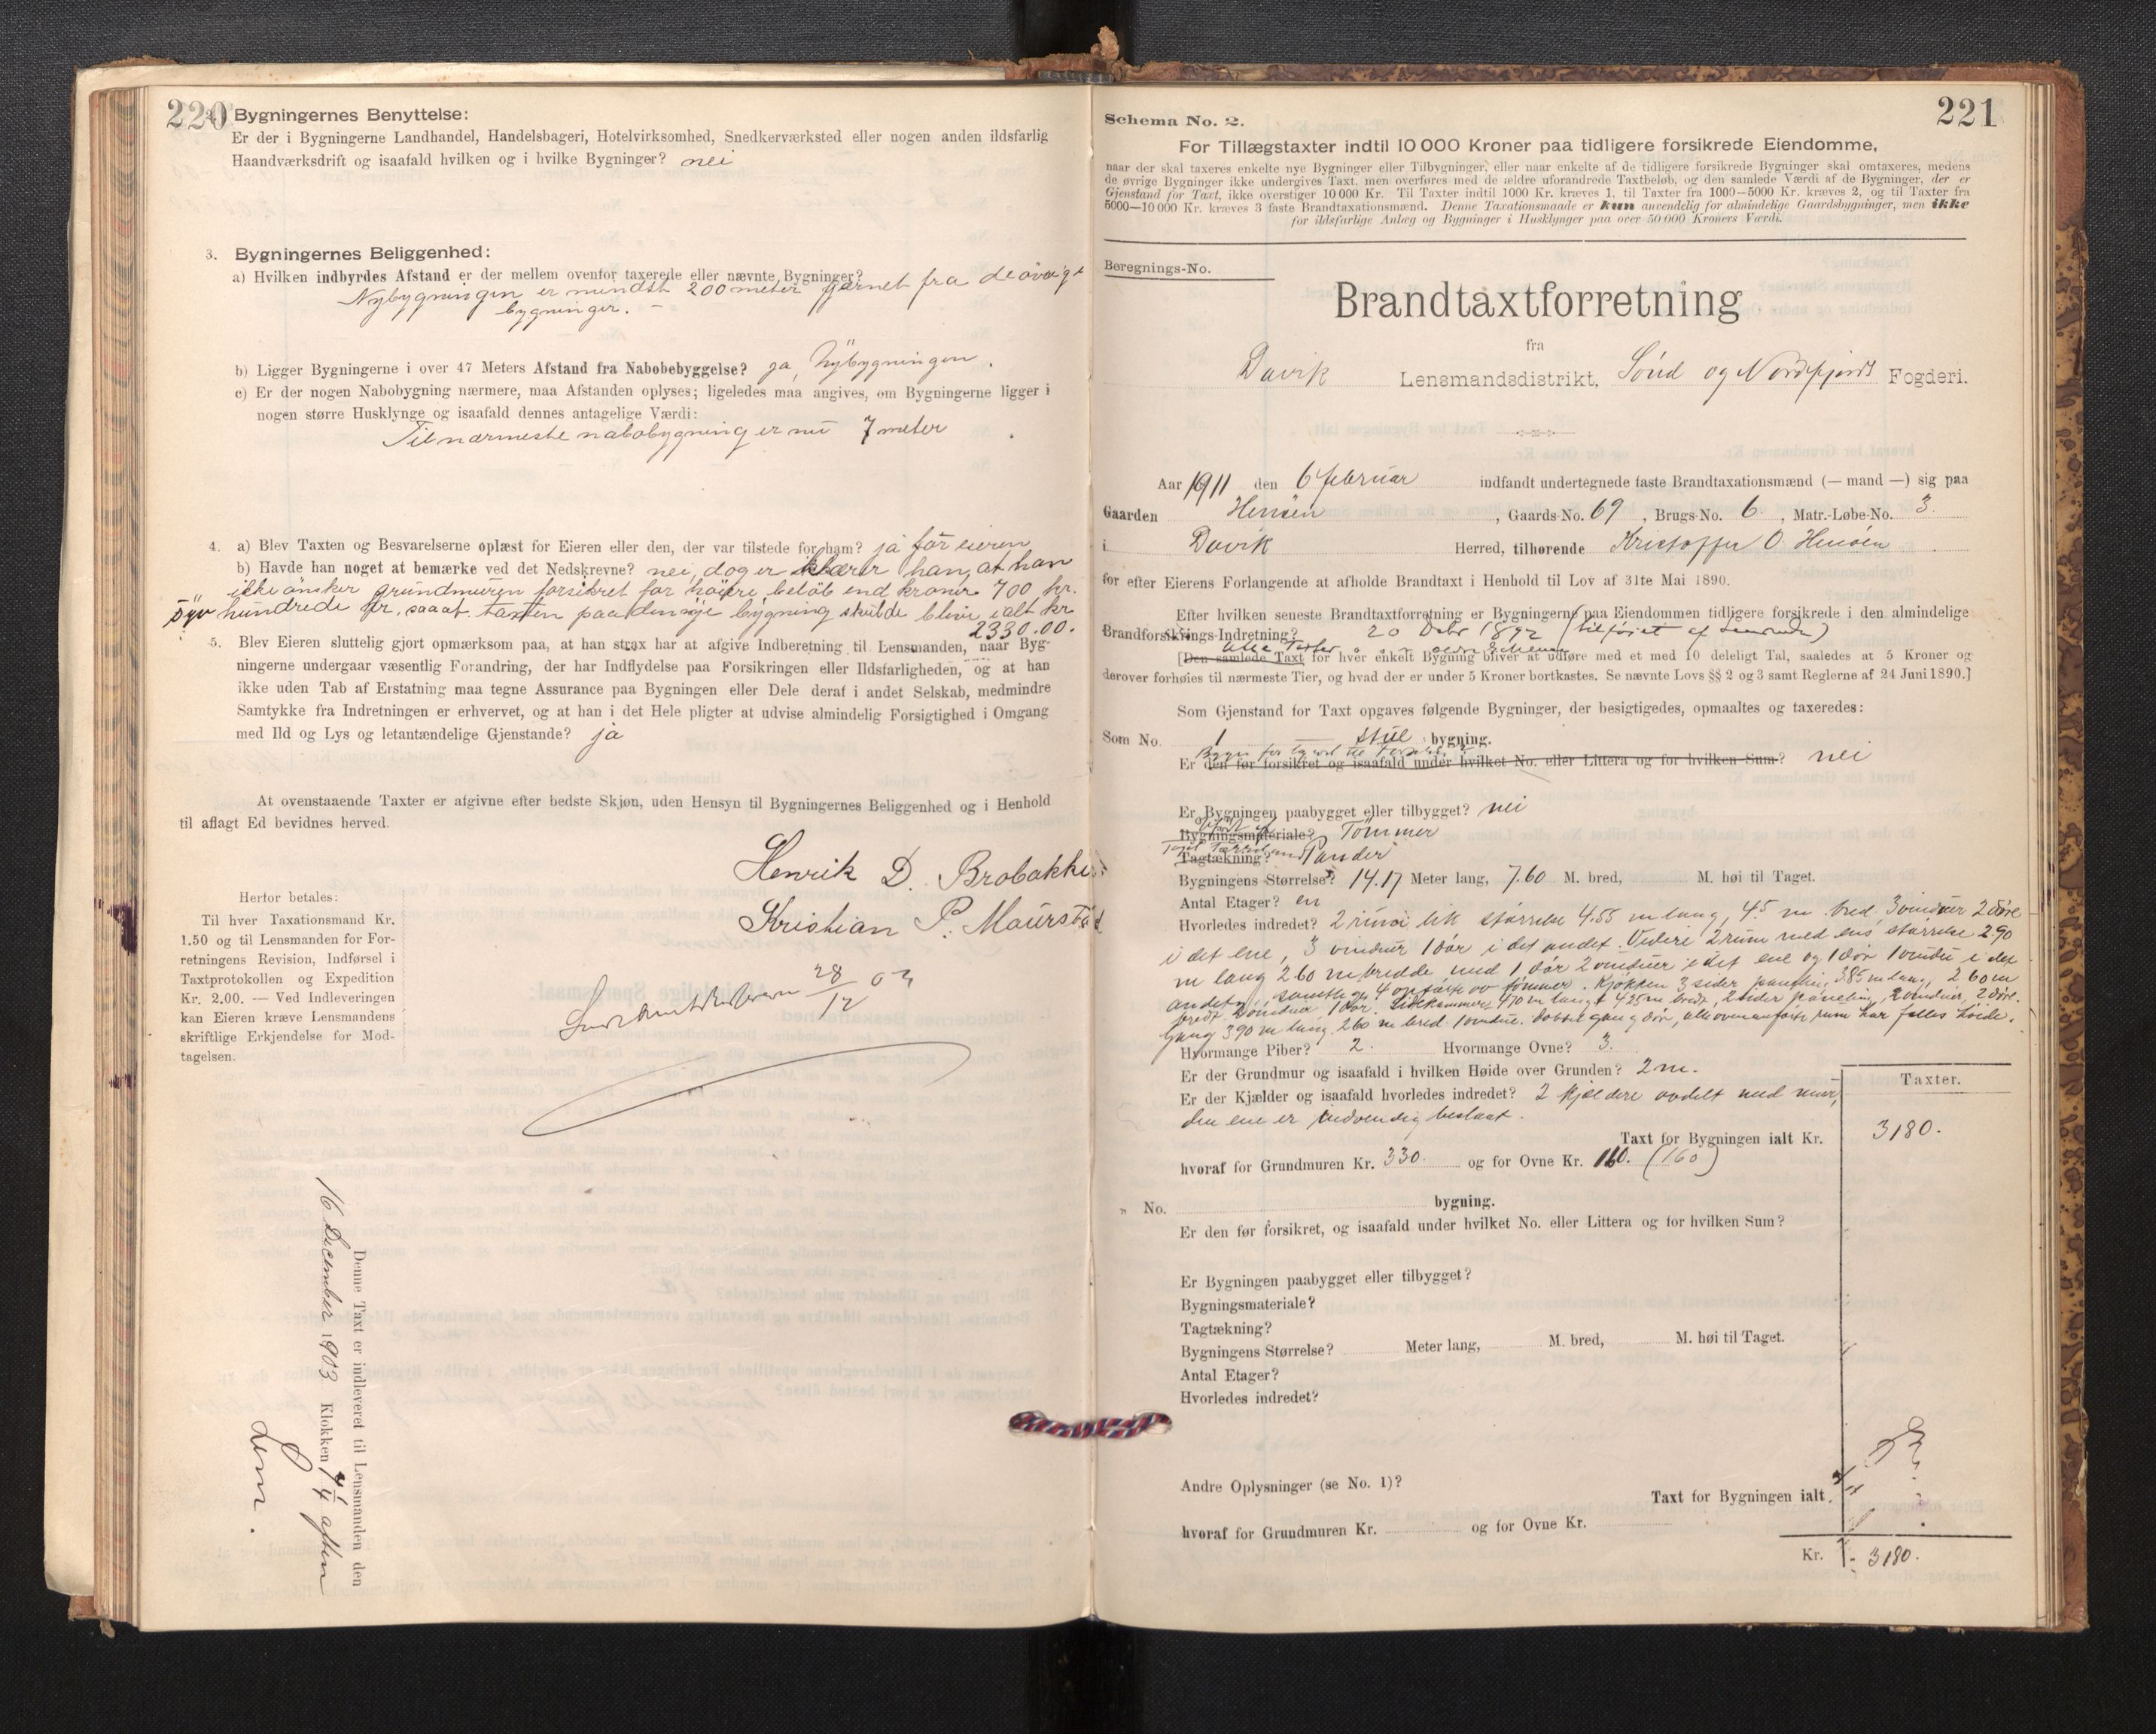 220 Bygningernes Benyttelse:
Er der i Bygningerne Landhandel, Handelsbageri, Hotelvirksomhed, Snedkerværksted eller nogen anden ildsfarlig
Haandværksdrift og isaafald hvilken og i hvilke Bygninger? nei
3. Bygningernes Beliggenhed:
a) Hvilken indbyrdes Afstand er der mellem ovenfor taxerede eller nævnte Bygninger?
Nybygningen er mindst 200 meter fjernet fra de øvrige
bygninger. –
b) Ligger Bygningerne i over 47 Meters Afstand fra Nabobebyggelse? ja, Nybygningen.
c) Er der nogen Nabobygning nærmere, maa Afstanden oplyses; ligeledes maa angives, om Bygningerne ligger i
nogen større Husklynge og isaafald dennes antagelige Værdi:
Til nærmeste nabobygning er nu 7 meter.
4. a) Blev Taxten og Besvarelserne oplæst for Eieren eller den, der var tilstede for ham? ja for eieren
b) Havde han noget at bemærke ved det Nedskrevne? nei, dog erklærer han, at han
ikke ønsker grundmuren forsikret for høiere beløb end kroner 700 kr.
Syv hundrede kr. saaat taxten paa den nye bygning skulde blive ialt kr
2330.00.
5. Blev Eieren sluttelig gjort opmærksom paa, at han strax har at afgive Indberetning til Lensmanden, naar Byg-
ningerne undergaar væsentlig Forandring, der har Indflydelse paa Forsikringen eller Ildsfarligheden, og at han
ikke uden Tab af Erstatning maa tegne Assurance paa Bygningen eller Dele deraf i andet Selskab, medmindre
Samtykke fra Indretningen er erhvervet, og at han i det Hele pligter at udvise almindelig Forsigtighed i Omgang
med Ild og Lys og letantændelige Gjenstande? ja
At ovenstaaende Taxter er afgivne efter bedste Skjøn, uden Hensyn til Bygningernes Beliggenhed og i Henhold
til aflagt Ed bevidnes herved.
Henrik D. Brobakke
Kristian P. Maurstad
28/12 03
Herfor betales:
Til hver Taxationsmand Kr.
1.50 og til Lensmanden for For-
retningens Revision, Indførsel i
Taxtprotokollen og Expedition
Kr. 2.00. — Ved Indleveringen
kan Eieren kræve Lensmandens
skriftlige Erkjendelse for Mod-
tagelsen.
Denne Taxt er indleveret til Lensmanden den
16 December 1903 Klokken 4 1/4 aften
Lem.
221
Schema No. 2.
For Tillægstaxter indtil 10 000 Kroner paa tidligere forsikrede Eiendomme,
naar der skal taxeres enkelte nye Bygninger eller Tilbygninger, eller naar enkelte af de tidligere forsikrede Bygninger skal omtaxeres, medens
de øvrige Bygninger ikke undergives Taxt, men overføres med de ældre uforandrede Taxtbeløb, og den samlede Værdi af de Bygninger, der er
Gjenstand for Taxt, ikke overstiger 10 000 Kr. Til Taxter indtil 1000 Kr. kræves 1, til Taxter fra 1000—5000 Kr. kræves 2, og til Taxter fra
5000—10 000 Kr. kræves 3 faste Brandtaxationsmænd. Denne Taxationsmaade er kun anvendelig for almindelige Gaardsbygninger, men ikke
for ildsfarlige Anlæg og Bygninger i Husklynger paa over 50 000 Kroners Værdi.
Beregnings-No.
Brandtaxtforretning
fra
Davik Lensmandsdistrikt, Sönd og Nordfjords Fogderi.
Aar 1911 den 6 februar indfandt undertegnede faste Brandtaxationsmænd (— mand —) sig paa
Gaarden Henøen, Gaards-No. 69, Brugs-No. 6, Matr.-Løbe-No. 3
i Davik Herred, tilhørende Kristoffer O. Henøen
for efter Eierens Forlangende at afholde Brandtaxt i Henhold til Lov af 31te Mai 1890.
Efter hvilken seneste Brandtaxtforretning er Bygningerne paa Eiendommen tidligere forsikrede i den almindelige
Brandforsikrings-Indretning? 20 Debr 1892 (tilføiet af
[Den samlede Taxt for hver enkelt Bygning bliver at udføre med et med 10 deleligt Tal, saaledes at 5 Kroner og
derover forhøies til nærmeste Tier, og hvad der er under 5 Kroner bortkastes. Se nævnte Lovs §§ 2 og 3 samt Reglerne af 24 Juni 1890.]
Som Gjenstand for Taxt opgaves følgende Bygninger, der besigtigedes, opmaaltes og taxeredes:
Som No. 1 stue bygning.
Er den før forsikret og isaafald under hvilket No. eller Littera og for hvilken Sum? nei
Er Bygningen paabygget eller tilbygget? nei
Bygningsmateriale? Tømmer
Tagtækning? Pander
Bygningens Størrelse? 14.17 Meter lang, 7.60 M. bred, M. høi til Taget.
Antal Etager? en
Hvorledes indredet? 2 rum i lik størrelse 4.55 m lang, 4.5 m bred, 3 vinduer 2 døre
i det ene, 3 vinduer 1 dør i det andet. Videre 2 rum med ens størrelse 2.90
m lang 2.60 m bredde med 1 dør 2 vinduer i det ene og 1 dør 1 vindu i det
andet, samtlige 4 opført av tømmer. Kjøkken 3 sider paneling 3.85 m lang, 2.60 m
bredt 2 vinduer, 1 dør. Sidekammers 4.70 m langt 4.25 m bredt, 2 sider paneling, 2 vinduer, 2 døre.
Gang 3.90 m lang 2.60 m bred 1 vindue. dobbelt gangdør, alle ovenanførte rum har fælles høide.
Hvormange Piber? 2. Hvormange Ovne? 3.
Er der Grundmur og isaafald i hvilken Høide over Grunden? 2 m.
Er der Kjælder og isaafald hvorledes indredet? 2 kjældere avdelt med mur,
den ene er indvendig beslaat.
Taxter.
Taxt for Bygningen ialt Kr. 3180.
hvoraf for Grundmuren Kr. 330. og for Ovne Kr. 160. (160)
" No. bygning.
Er den før forsikret, og isaafald under hvilket No. eller Littera og for hvilken Sum?
Er Bygningen paabygget eller tilbygget?
Bygningsmateriale?
Tagtækning?
Bygningens Størrelse? Meter lang, M. bred, M. høi til Taget.
Antal Etager?
Hvorledes indredet?
Andre Oplysninger (se No. 1)?
Taxt for Bygningen ialt
hvoraf for Grundmuren Kr. og for Ovne Kr.
Kr. 3180.